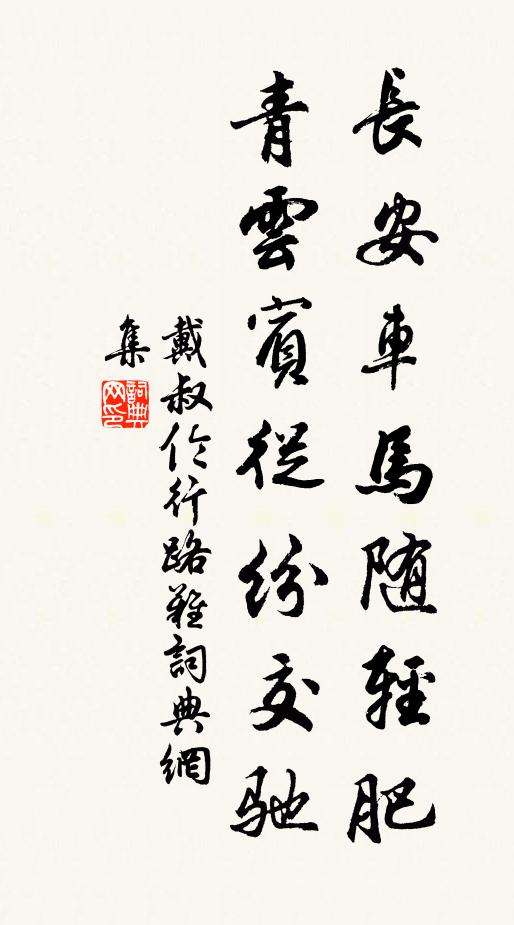 長安車馬隨輕肥
青雲賓從紛交馳
戴叔伦行路難詞典網
集
詞典网印